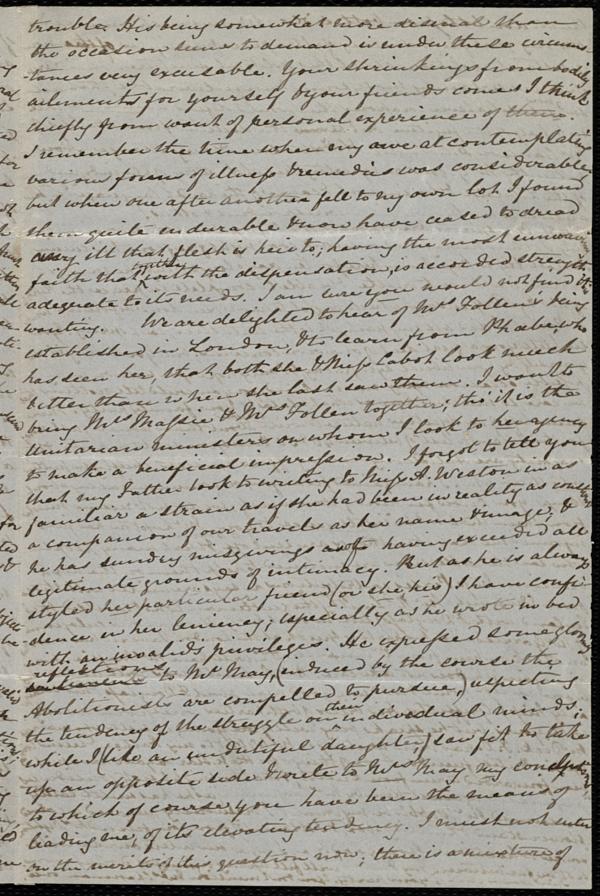 trouble. His being somewhat more dismal than
the occasion seems to demand is under these circums-
tances very excusable. Your shrinkings from bodily
ailments for yourself & your friends comes I think
chiefly from want of personal experience of them.
I remember the time when my awe at contemplating
various forms of illness & remedies was considerable,
but when one after another fell to my own lot I found
them quite endurable & now have ceased to dread
any ill that flesh is heir to; having the most
faith that with the dispensation, is accorded strength
adequate to its needs. I am sure you would not find it
wanting. We are delighted to hear of Mrs Follen's being
established in London, & to learn from Phoebe, who
has seen her, that both she & Miss Cabot look much
better than when she last saw them. I want to
bring Mrs Massie & Mrs Follen together; tho' it is the
Unitarian ministers on whom I look to her agency
to make a beneficial impression. I forgot to tell you
that my Father took to writing to Miss A. Weston in as
familiar a strain as if she had been in reality as
a companion of our travels as her name & image, &
he has sundry misgivings as of having exceeded all
legitimate grounds of intimacy. But as he is always
styled her particular friend (or she, his) I have confi-
dence in her leniency; especially as he wrote in bed
with an invalid's privileges. He expressed some
reflections to Mr May, (induced by the course the
Abolitionists are compelled to pursue,) respecting
the tendency of the struggle on their individual minds;
while I (like an undutiful daughter) saw fit to take
up an opposite side & wrote to Mr May my conclusion
to which of course you have been the means of
leading me, of its elevating tendency. I must not enter
on the merits of this question now; there is a mixture of